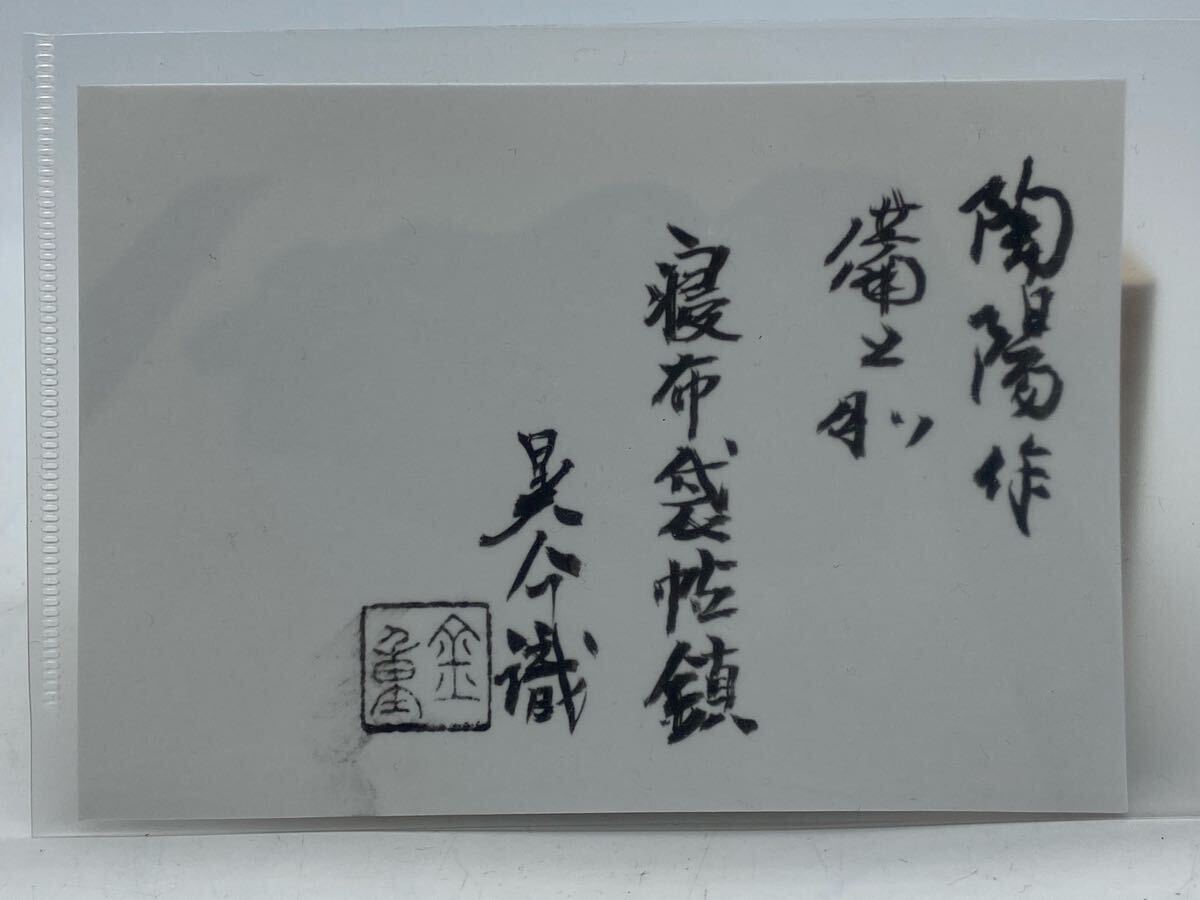 陶陽作
備前
寝布袋帖鎮
晃介識
金重